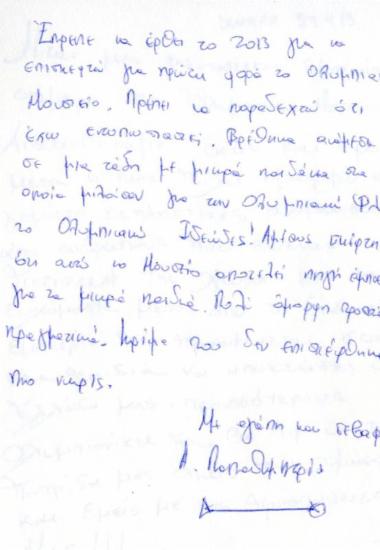 Έπρεπε να έρθει το 2013 για να
επισκεφτώ για πρώτη φορά το Ολυμπια
Μουσείο. Πρέπει να παραδεχτώ ότι
έχω εντυπωσιαστεί. Βρέθηκα ανάμεσα
σε μια τάξη με μικρά παιδάκια στα
οποία μιλούσαν για την Ολυμπιακή Φλ
το Ολυμπιακό Ιδεώδες! Αμέσως σκέφτη
ότι αυτό το Μουσείο αποτελεί πηγή έμπν
για τα μικρά παιδιά. Πολύ όμορφη προσπά
πραγματικά. Κρίμα που δεν επισκέφθηκα
πιο νωρίς.
Με αγάπη και σεβασ
Α. Παπαδημητρίο